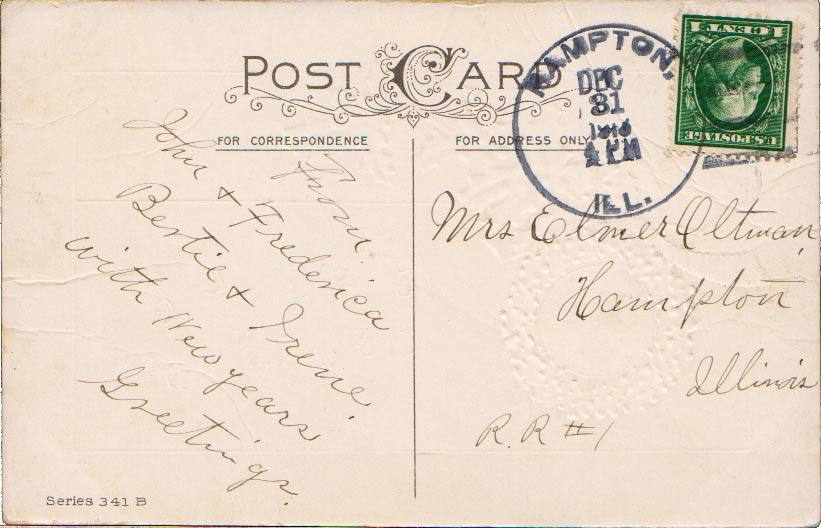 POST CARD
FOR CORRESPONDENCE
FOR ADDRESS ONLY
HAMPTON,
DEC
31
4 PM
ILL.
1 CENT 1
U.S. POSTAGE
from.
John & Frederica
Bertie & Irene.
with New years
Greetings.
Mrs Elmer Oltman,
Hampton
Illinois
R. R #1
Series 341 B